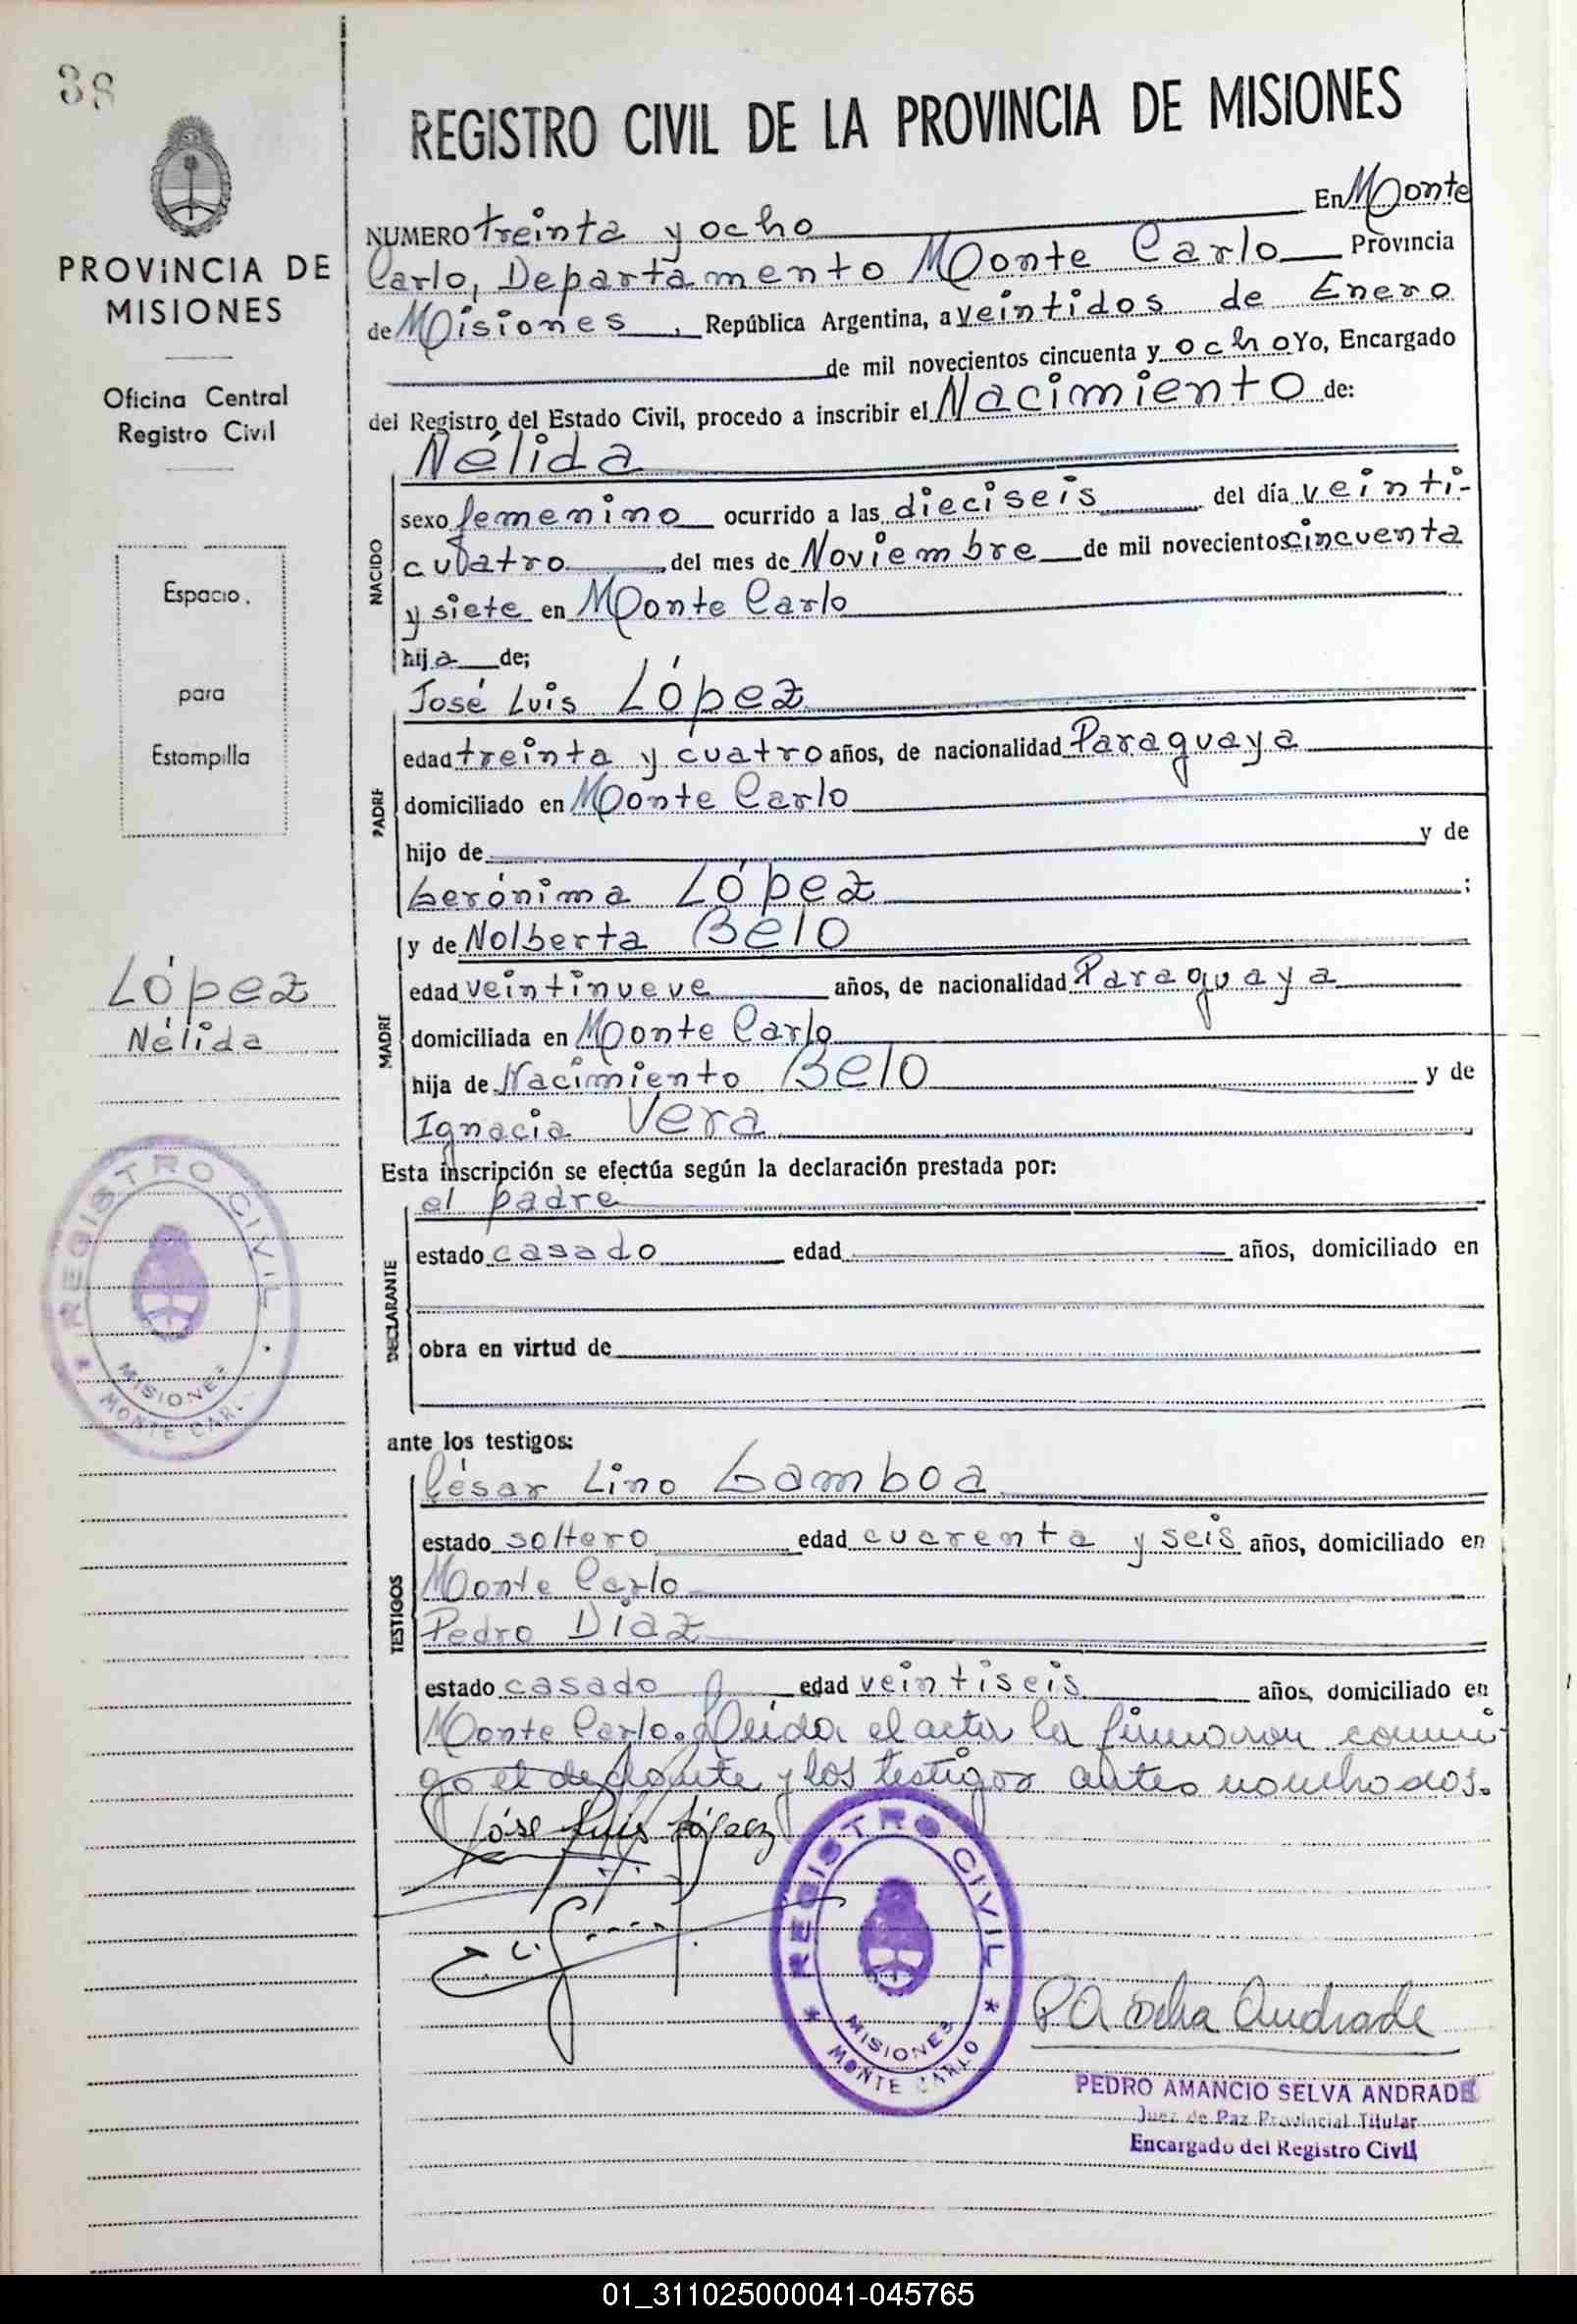 38
PROVINCIA DE
MISIONES
Oficina Central
Registro Civil
Espacio.
para
Estampilla
López
Nélida
REGISTRO CIVIL
MISIONES
MONTE CARLO
REGISTRO CIVIL DE LA PROVINCIA DE MISIONES
NUMERO treinta y ocho En Monte
Carlo, Departamento Monte Carlo Provincia
de Misiones, República Argentina, a veintidos de Enero
de mil novecientos cincuenta y ocho Yo, Encargado
del Registro del Estado Civil, procedo a inscribir el Nacimiento de:
NACIDO
Nélida
sexo femenino ocurrido a las dieciseis del día veinti-
cuatro del mes de Noviembre de mil novecientos cincuenta
y siete en Monte Carlo
hija de;
PADRE
José Luis López
edad treinta y cuatro años, de nacionalidad Paraguaya
domiciliado en Monte Carlo
hijo de y de
Gerónima López ;
MADRE
y de Nolberta Belo
edad veintinueve años, de nacionalidad Paraguaya
domiciliada en Monte Carlo
hija de Nacimiento Belo y de
Ignacia Vera
Esta inscripción se efectúa según la declaración prestada por:
DECLARANTE
el padre
estado casado edad años, domiciliado en
obra en virtud de
ante los testigos:
TESTIGOS
César Lino Gamboa
estado soltero edad cuarenta y seis años, domiciliado en
Monte Carlo
Pedro Díaz
estado casado edad veintiseis años, domiciliado en
Monte Carlo. Leída el acta la firmaron conmi-
go el declarante y los testigos antes nombrados.
José Luis López
REGISTRO CIVIL
MISIONES
MONTE CARLO
P A Selva Andrade
PEDRO AMANCIO SELVA ANDRADE
Juez de Paz Provincial Titular
Encargado del Registro Civil
01_311025000041-045765